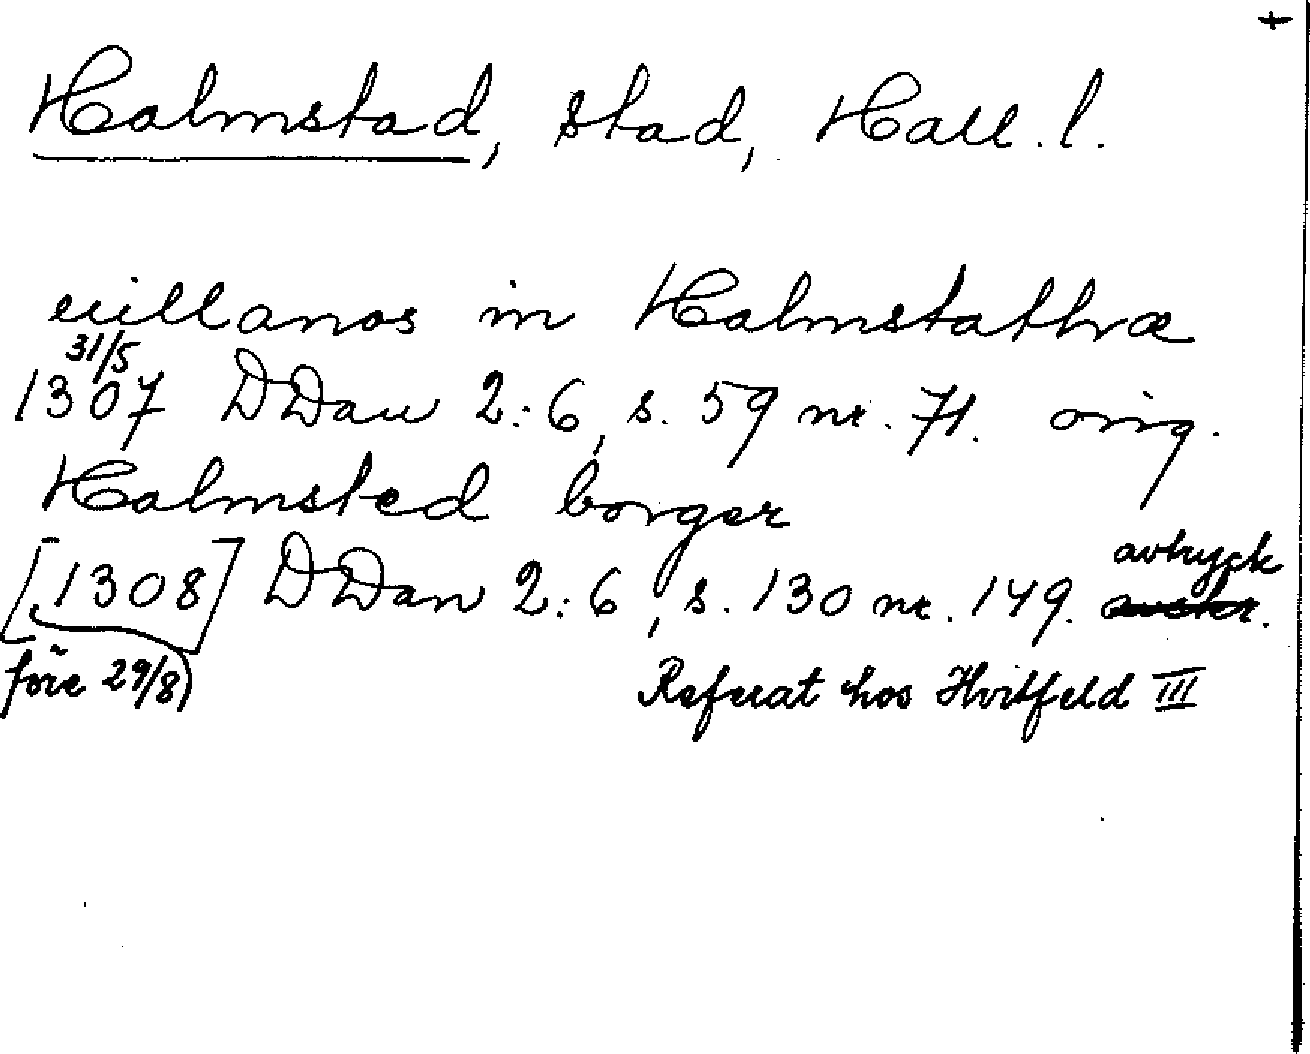 +
Halmstad, stad, Hall. l.
uillanos in Halmstathræ
31/5
1307 DDan 2:6, s. 59 nr. 71. orig.
Halmsted borger
avtryck
[1308] DDan 2:6, s. 130 nr. 149.
före 29/8) Referat hos Hvitfeld III